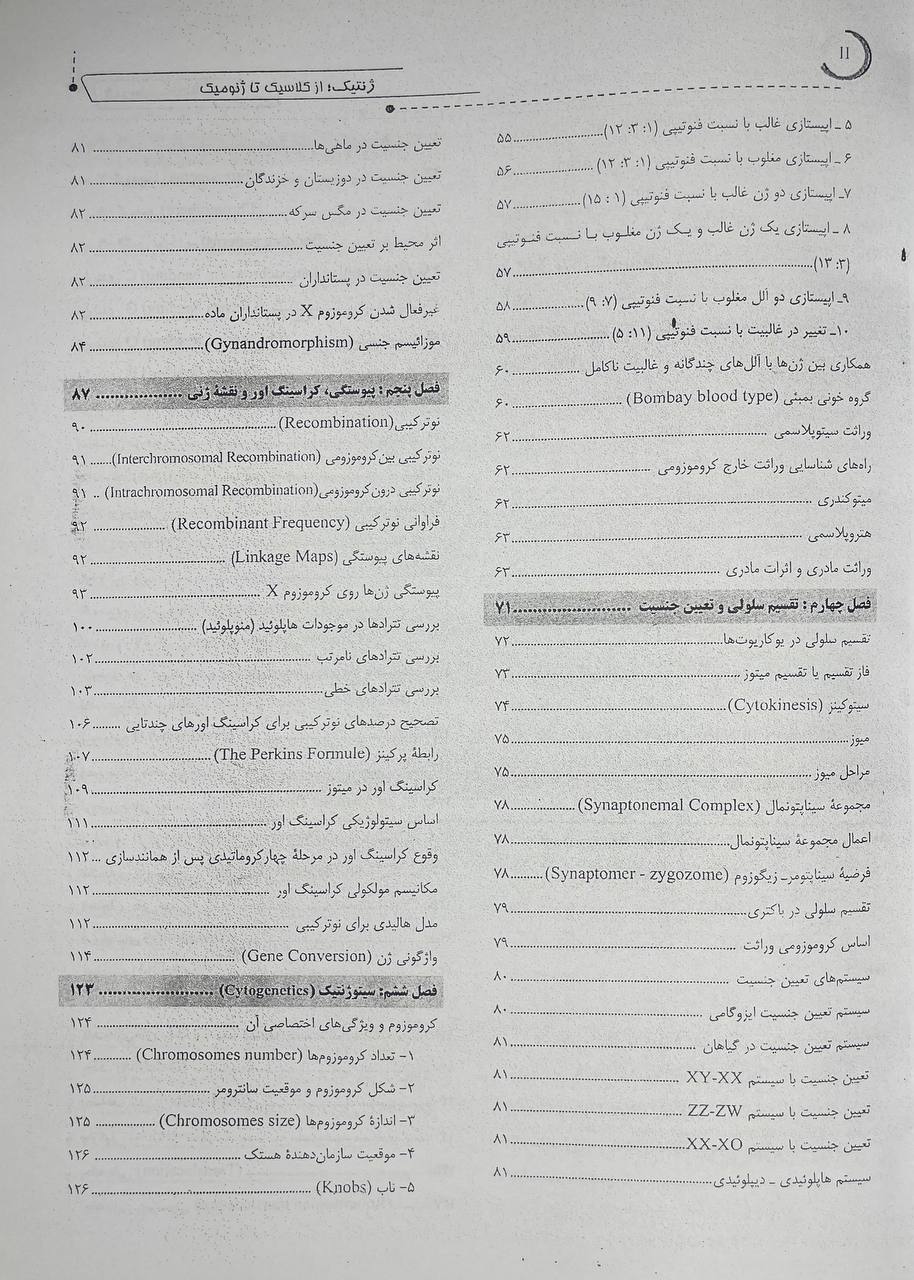 II
ژنتیک؛ از کلاسیک تا ژنومیک
۵ ـ اپیستازی غالب با نسبت فنوتیپی (۱: ۳: ۱۲)..........۵۵
۶ ـ اپیستازی مغلوب با نسبت فنوتیپی (۱: ۳: ۱۲) ..........۵۶
۷ـ اپیستازی دو ژن غالب با نسبت فنوتیپی (۱ : ۱۵)..........۵۷
۸ ـ اپیستازی یک ژن غالب و یک ژن مغلوب با نسبت فنوتیپی
(۳: ۱۳)..........۵۷
۹ـ اپیستازی دو الل مغلوب با نسبت فنوتیپی (۷: ۹)..........۵۸
۱۰ـ تغییر در غالبیت با نسبت فنوتیپی (۱۱: ۵)..........۵۹
همکاری بین ژن‌ها با آلل‌های چندگانه و غالبیت ناکامل ..........۶۰
گروه خونی بمبئی (Bombay blood type) ..........۶۰
وراثت سیتوپلاسمی ..........۶۲
راه‌های شناسایی وراثت خارج کروموزومی ..........۶۲
میتوکندری ..........۶۲
هتروپلاسمی ..........۶۳
وراثت مادری و اثرات مادری ..........۶۳
فصل چهارم : تقسیم سلولی و تعیین جنسیت ..........۷۱
تقسیم سلولی در یوکاریوت‌ها..........۷۲
فاز تقسیم یا تقسیم میتوز ..........۷۳
سیتوکینز (Cytokinesis)..........۷۴
میوز..........۷۵
مراحل میوز ..........۷۵
مجموعهٔ سیناپتونمال (Synaptonemal Complex) ..........۷۸
اعمال مجموعهٔ سیناپتونمال..........۷۸
فرضیهٔ سیناپتومرـ زیگوزوم (Synaptomer - zygozome)..........۷۸
تقسیم سلولی در باکتری..........۷۹
اساس کروموزومی وراثت ..........۷۹
سیستم‌های تعیین جنسیت ..........۸۰
سیستم تعیین جنسیت ایزوگامی ..........۸۰
سیستم تعیین جنسیت در گیاهان ..........۸۱
تعیین جنسیت با سیستم XY-XX ..........۸۱
تعیین جنسیت با سیستم ZZ-ZW ..........۸۱
تعیین جنسیت با سیستم XX-XO..........۸۱
سیستم هاپلوئیدی ـ دیپلوئیدی..........۸۱
تعیین جنسیت در ماهی‌ها..........۸۱
تعیین جنسیت در دوزیستان و خزندگان..........۸۱
تعیین جنسیت در مگس سرکه..........۸۲
اثر محیط بر تعیین جنسیت ..........۸۲
تعیین جنسیت در پستانداران ..........۸۲
غیرفعال شدن کروموزوم X در پستانداران ماده..........۸۲
موزائیسم جنسی (Gynandromorphism)..........۸۴
فصل پنجم : پیوستگی، کراسینگ اور و نقشهٔ ژنی ..........۸۷
نوترکیبی(Recombination)..........۹۰
نوترکیبی بین‌کروموزومی (Interchromosomal Recombination)......۹۱
نوترکیبی درون‌کروموزومی(Intrachromosomal Recombination) ..۹۱
فراوانی نوترکیبی (Recombinant Frequency) ..........۹۲
نقشه‌های پیوستگی (Linkage Maps) ..........۹۲
پیوستگی ژن‌ها روی کروموزوم X ..........۹۳
بررسی تترادها در موجودات هاپلوئید (منوپلوئید) ..........۱۰۰
بررسی تترادهای نامرتب ..........۱۰۲
بررسی تترادهای خطی..........۱۰۳
تصحیح درصدهای نوترکیبی برای کراسینگ اورهای چندتایی ........۱۰۶
رابطهٔ پرکینز (The Perkins Formule) ..........۱۰۷
کراسینگ اور در میتوز ..........۱۰۹
اساس سیتولوژیکی کراسینگ اور ..........۱۱۱
وقوع کراسینگ اور در مرحلهٔ چهارکروماتیدی پس از همانندسازی ...۱۱۲
مکانیسم مولکولی کراسینگ اور ..........۱۱۲
مدل هالیدی برای نوترکیبی ..........۱۱۲
واژگونی ژن (Gene Conversion) ..........۱۱۴
فصل ششم: سیتوژنتیک (Cytogenetics) ..........۱۲۳
کروموزوم و ویژگی‌های اختصاصی آن ..........۱۲۴
۱- تعداد کروموزوم‌ها (Chromosomes number) ..........۱۲۴
۲- شکل کروموزوم و موقعیت سانترومر ..........۱۲۵
۳- اندازهٔ کروموزوم‌ها (Chromosomes size) ..........۱۲۵
۴- موقعیت سازمان‌دهندهٔ هستک ..........۱۲۶
۵- ناب (Knobs) ..........۱۲۶